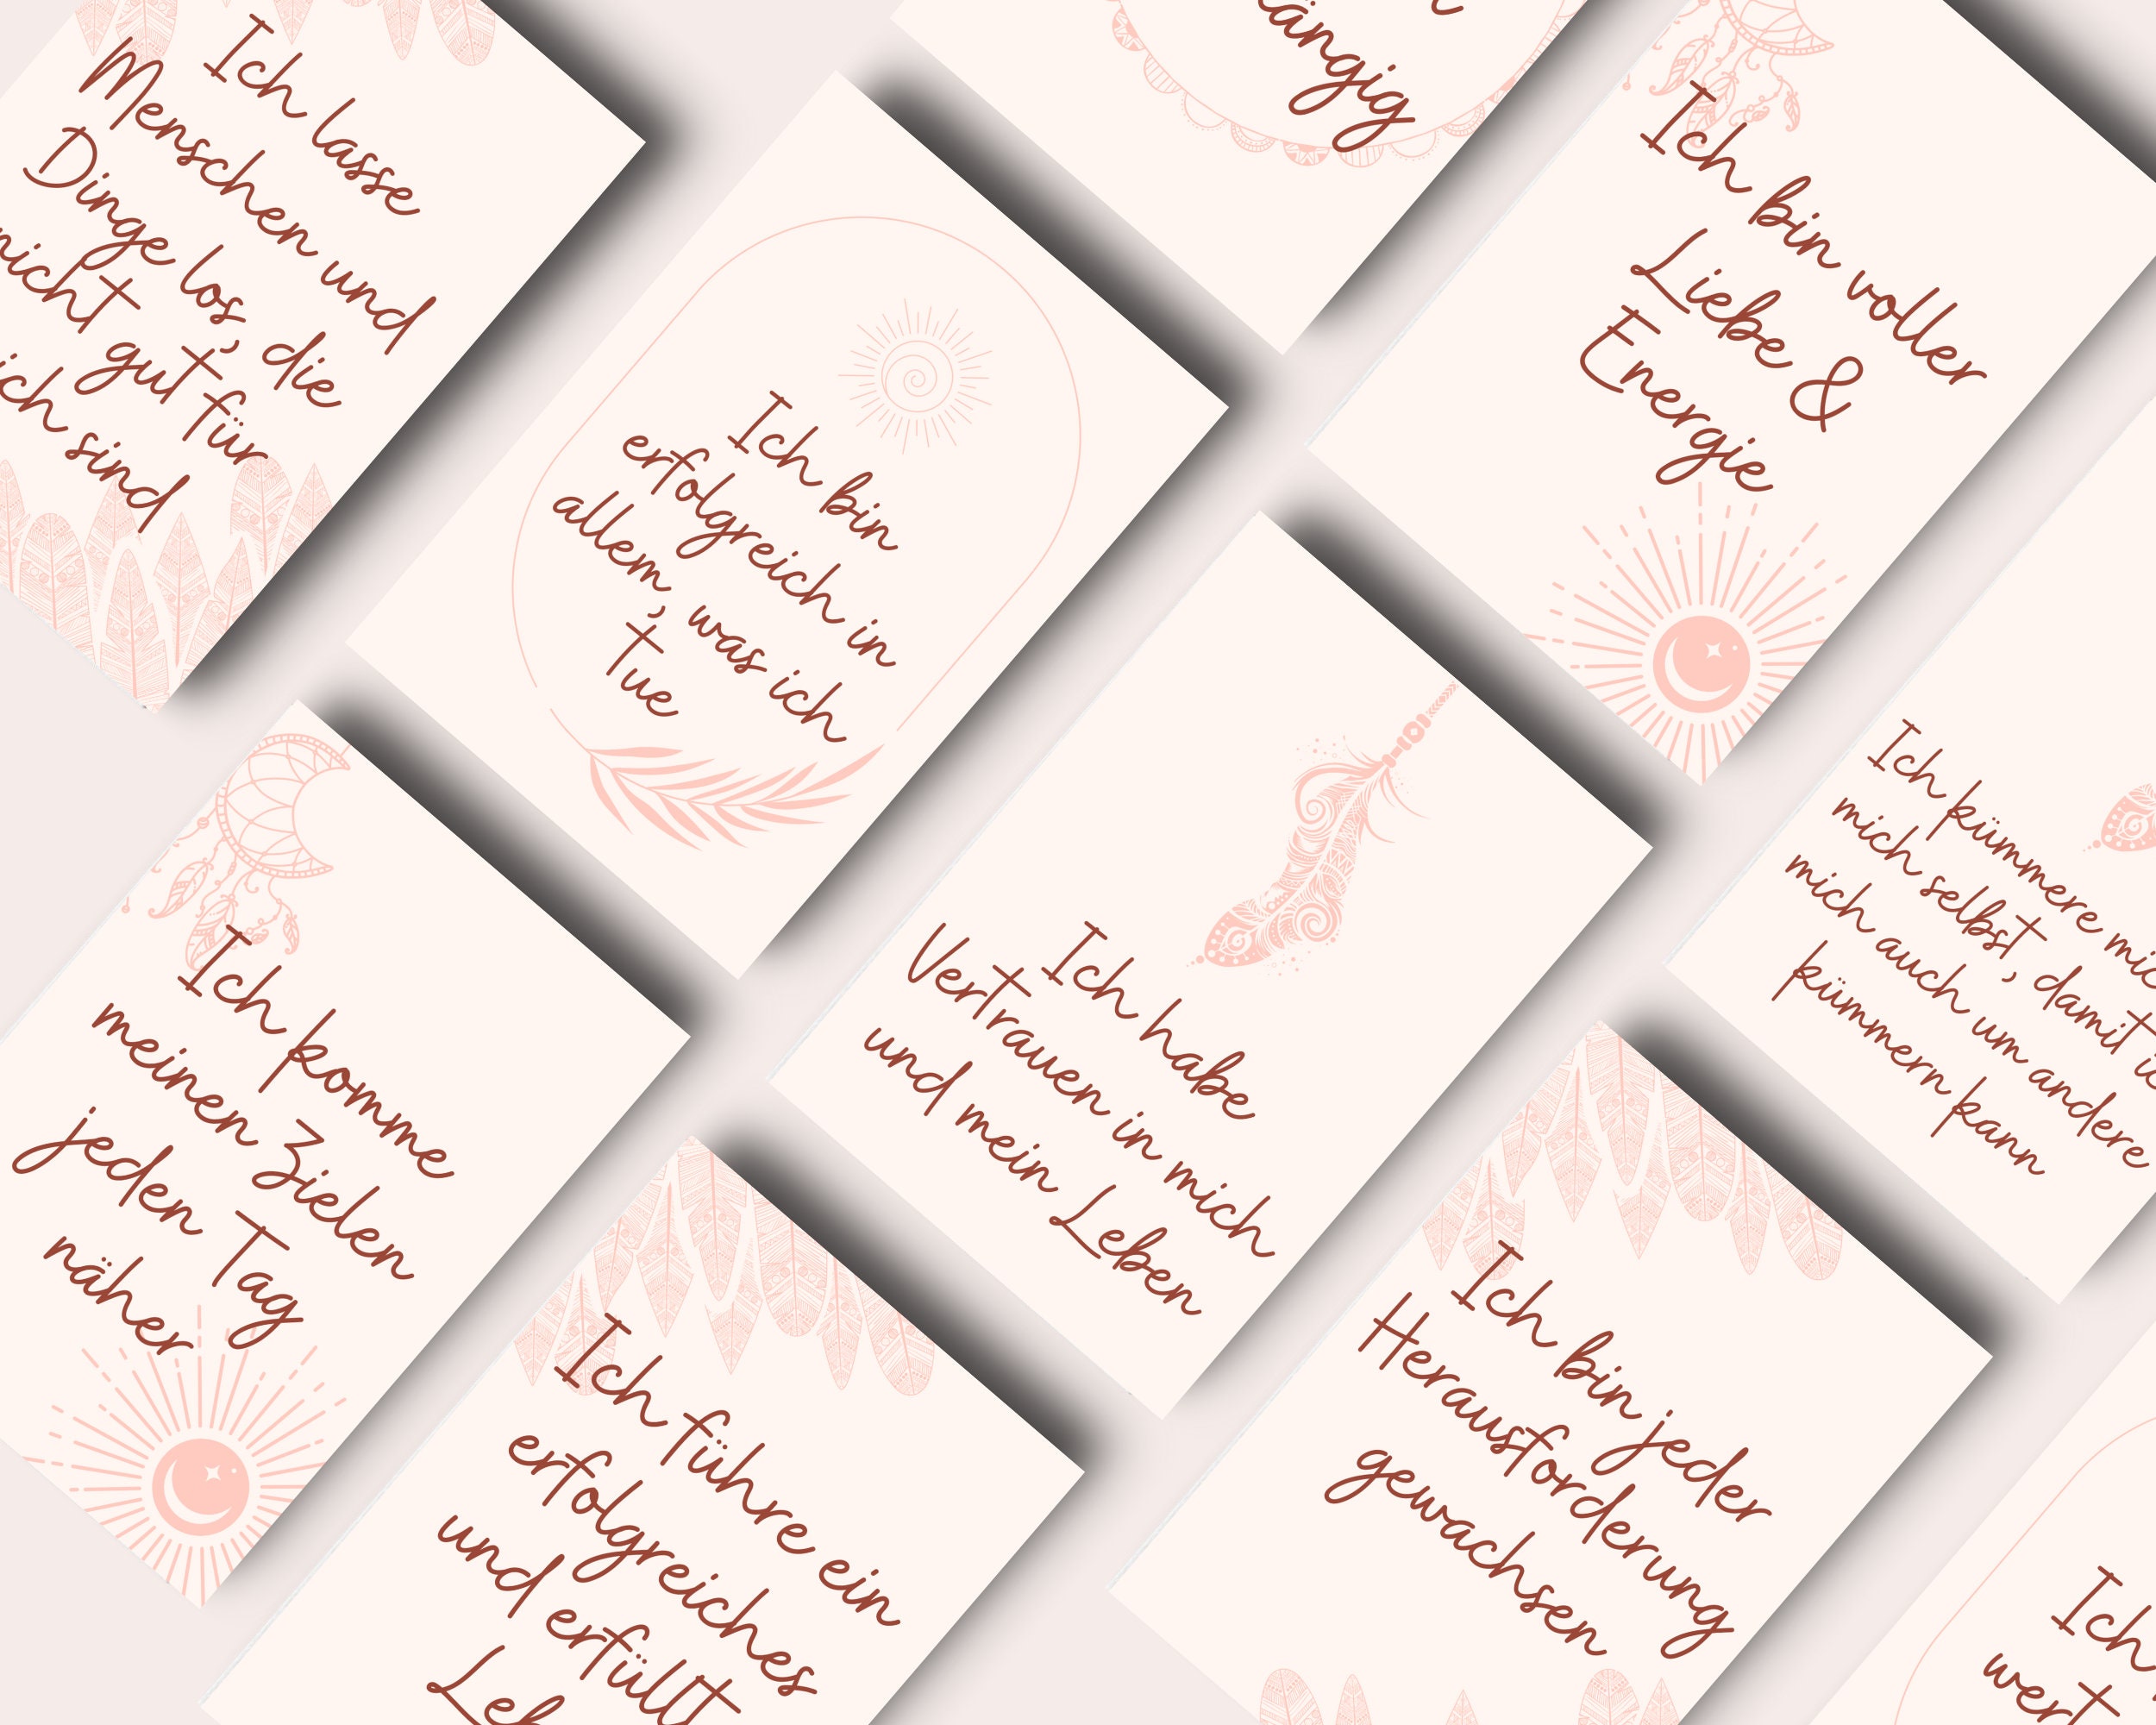 Ich lasse
Menschen und
Dinge los, die
nicht gut für
ich sind
ängig
Ich bin voller
Liebe &
Energie
Ich bin
erfolgreich in
allem, was ich
tue
Ich kümmere mich
mich selbst, damit
mich auch um andere
kümmern kann
Ich habe
Vertrauen in mich
und mein Leben
Ich komme
meinen Zielen
jeden Tag
näher
Ich bin jeder
Herausforderung
gewachsen
Ich führe ein
erfolgreiches
und erfüllt
Leb
Ich
wert